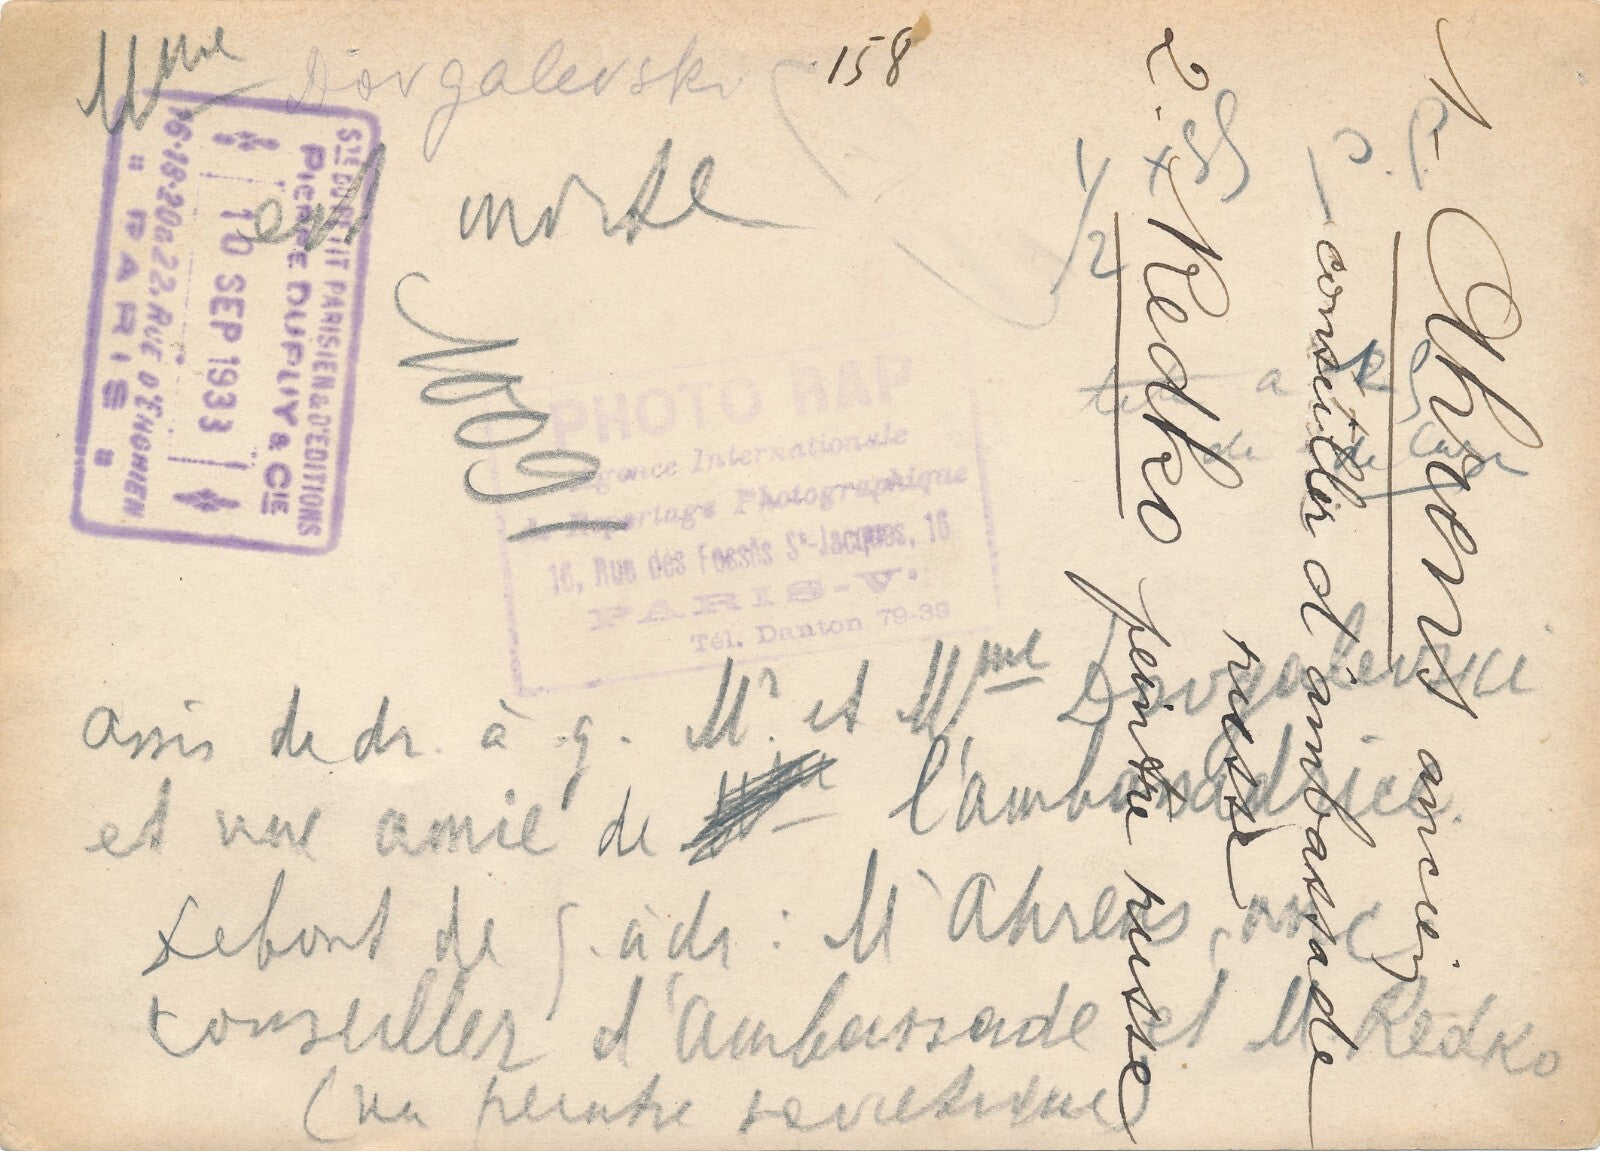 Mme Dovgalevski
158
est morte
Sté DU PETIT PARISIEN & D'EDITIONS
PIERRE DUPUY & CIE
10 SEP 1933
16·18·20 & 22, RUE D'ENGHIEN
" PARIS "
PHOTO RAP
Agence Internationale
de Reportage Photographique
16, Rue des Fossés St-Jacques, 16
PARIS-V.
Tél. Danton 79-38
1/2
1- Ahrens ancien
conseiller d'ambassade
russe
2. Redko peintre russe
assis de dr. à g. Mr. et Mme Dovgalevski
et une amie de l'ambassadrice.
debout de g. à dr : M Ahrens, anc
conseiller d'ambassade et M. Redko
(un peintre soviétique)